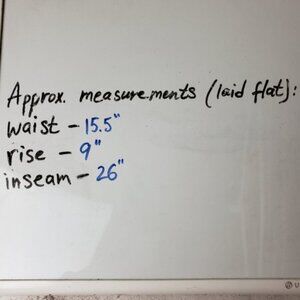 Approx. measurements (laid flat):
waist - 15.5"
rise - 9"
inseam - 26"